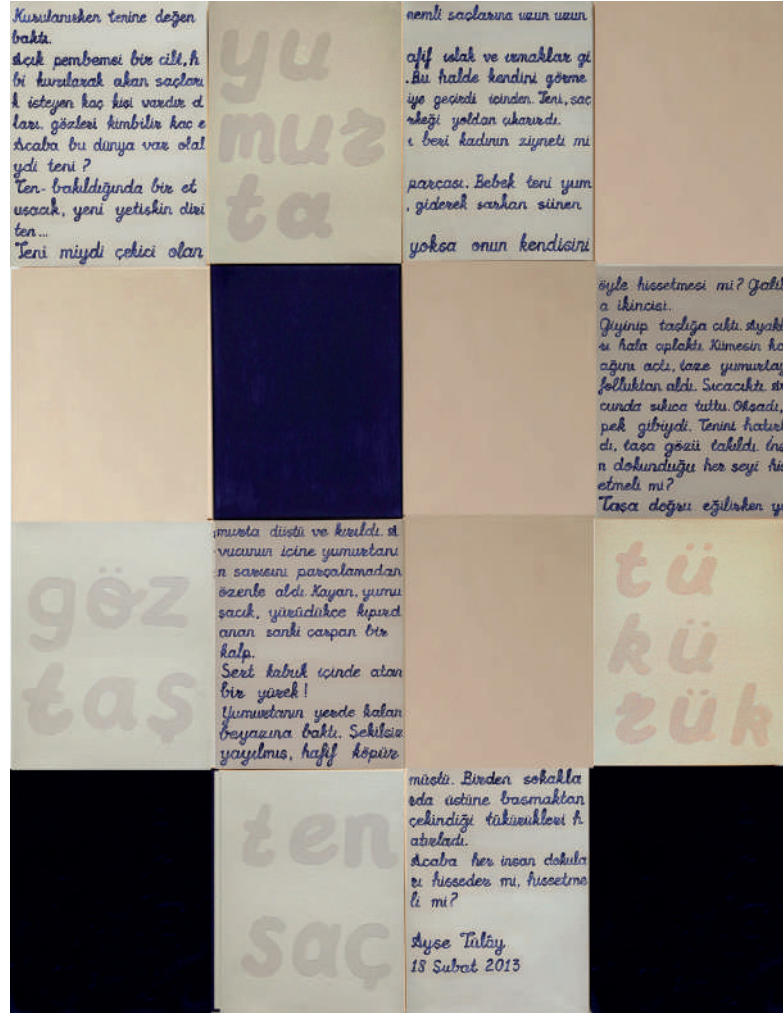 Kurulanırken tenine değen
baktı.
Açık pembemsi bir cilt, h
bi kıvrılarak akan saçları
k isteyen kaç kişi vardır d
ları, gözleri kimbilir kaç e
Acaba bu dünya var olal
ydi teni ?
Ten- bakıldığında bir et
uşacık, yeni yetişkin diri
ten...
Teni miydi çekici olan
yu
mur
ta
nemli saçlarına uzun uzun
afif ıslak ve ırmaklar gi
.Bu halde kendini görme
iye geçirdi içinden. Teni, saç
rkeği yoldan çıkarırdı.
ı beri kadının ziyneti mi
parçası. Bebek teni yum
, giderek sarkan sünen
yoksa onun kendisini
öyle hissetmesi mi? Galib
a ikincisi..
Giyinip taşlığa çıktı. Ayakl
rı hala çıplaktı. Kümesin ka
ağını açtı, taze yumurtay
folluktan aldı. Sıcacıktı. Av
cunda sıkıca tuttu. Okşadı,
pek gibiydi. Tenini hatırl
dı, taşa gözü takıldı. İns
n dokunduğu her şeyi his
etmeli mi?
Taşa doğru eğilirken yu
göz
taş
murta düştü ve kırıldı. A
vucunun içine yumurtanı
n sarısını parçalamadan
özenle aldı. Kayan, yumu
şacık, yürüdükçe kıpırd
anan sanki çarpan bir
kalp.
Sert kabuk içinde atan
bir yürek!
Yumurtanın yerde kalan
beyazına baktı. Şekilsiz
yayılmış, hafif köpür
tü
kü
rük
ten
saç
müştü. Birden sokakla
rda üstüne basmaktan
çekindiği tükürükleri h
atırladı.
Acaba her insan dokula
rı hisseder mi, hissetme
li mi?
Ayşe Tülây
18 Şubat 2013